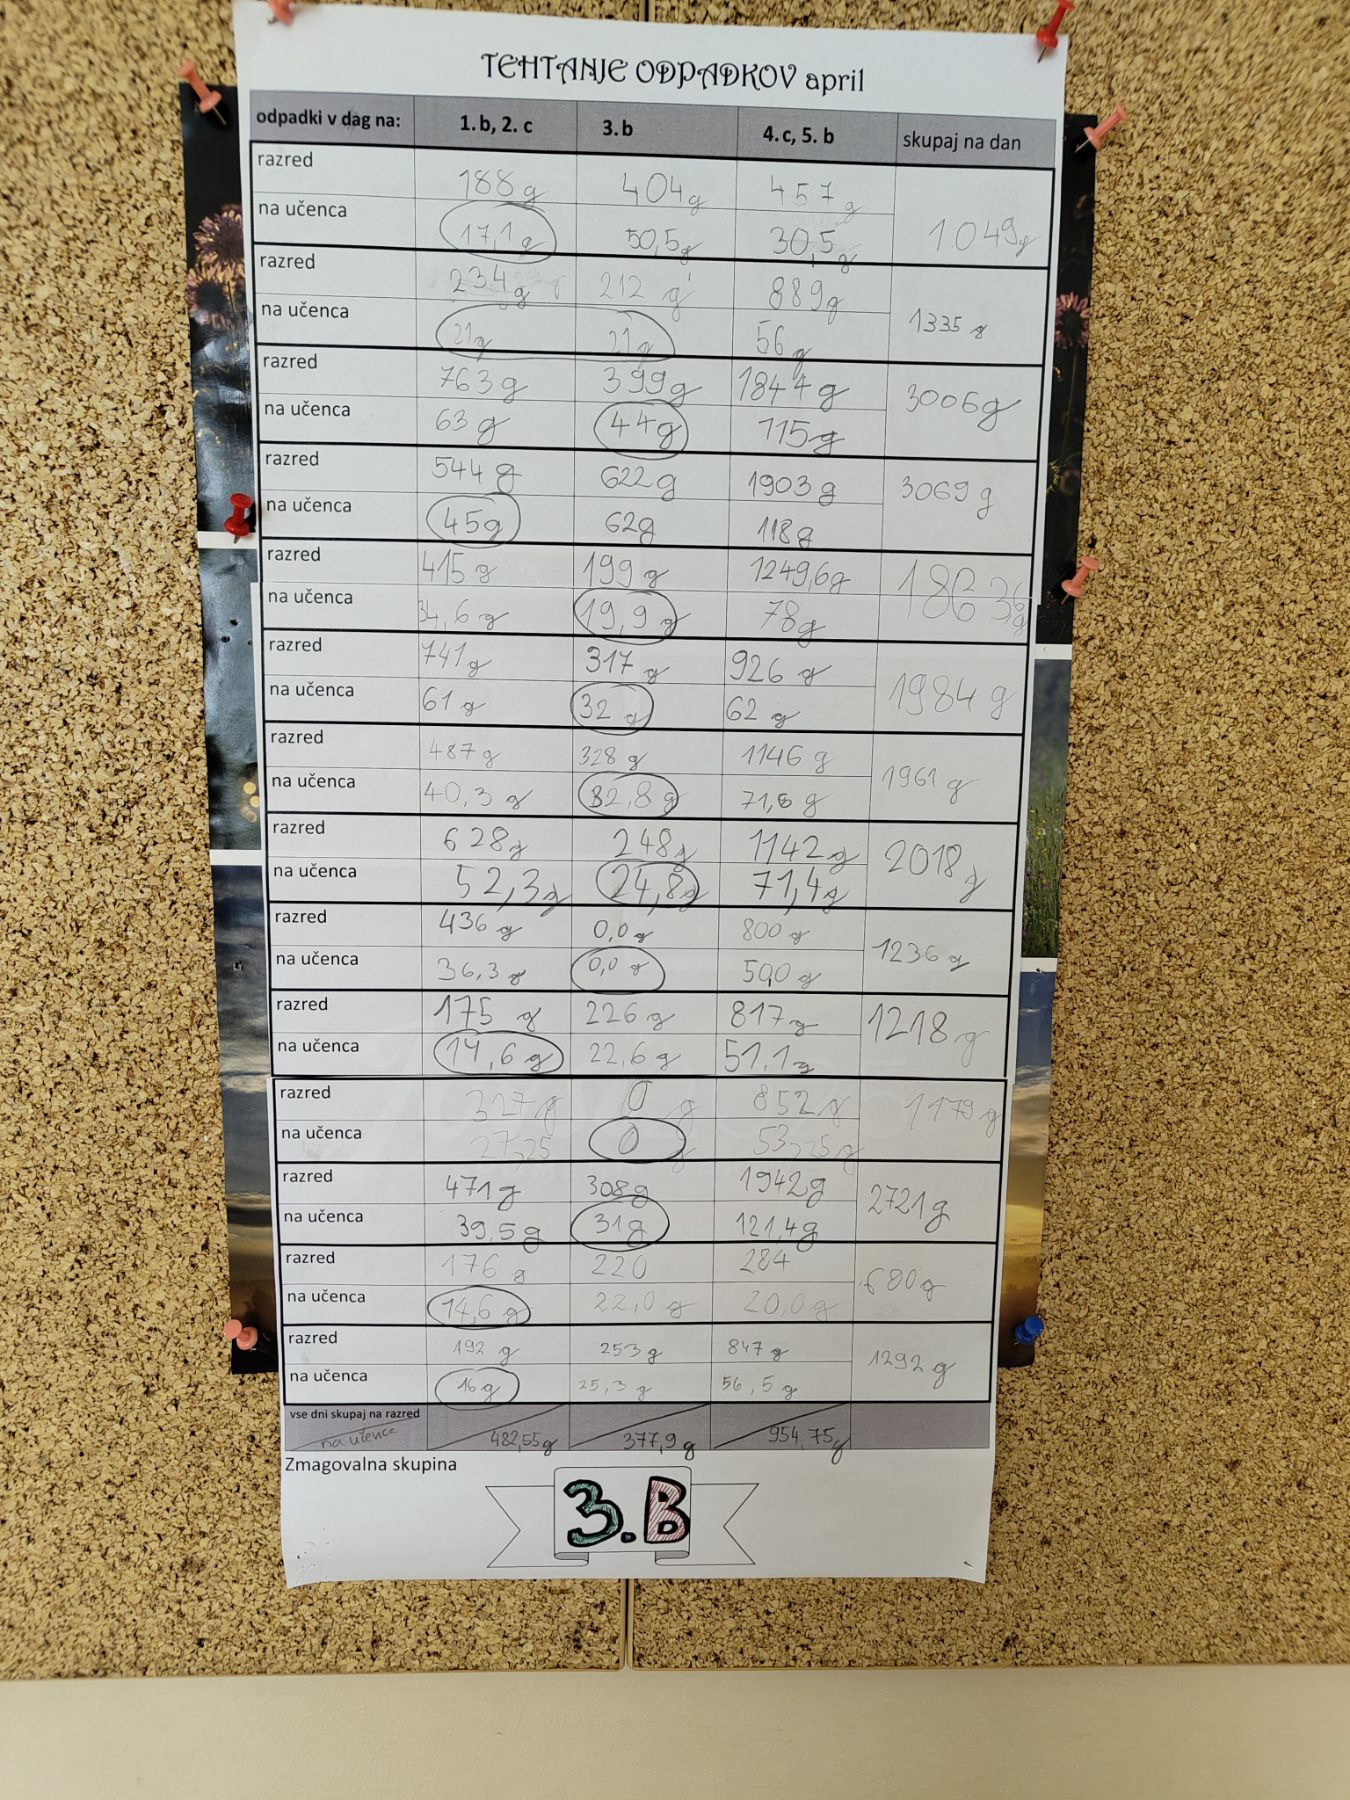 TEHTANJE ODPADKOV april
odpadki v dag na: 1. b, 2. c 3. b 4. c, 5. b skupaj na dan
razred 188 g 404 g 457 g
na učenca 17,1 g 50,5 g 30,5 g 1.049 g
razred 234 g 212 g 889 g
na učenca 21 g 21 g 56 g 1335 g
razred 763 g 399 g 1844 g
na učenca 63 g 44 g 115 g 3006 g
razred 544 g 622 g 1903 g
na učenca 45 g 62 g 118 g 3069 g
razred 415 g 199 g 1249,6 g
na učenca 34,6 g 19,9 g 78 g
razred 741 g 317 g 926 g
na učenca 61 g 32 g 62 g 1984 g
razred 487 g 328 g 1146 g
na učenca 40,3 g 32,8 g 71,6 g 1961 g
razred 628 g 248 g 1142 g
na učenca 52,3 g 24,8 g 71,4 g 2018 g
razred 436 g 0,0 g 800 g
na učenca 36,3 g 0,0 g 50,0 g 1236 g
razred 175 g 226 g 817 g
na učenca 14,6 g 22,6 g 51,1 g 1218 g
razred 327 g 0 g 852 g
na učenca 27,25 0 g 53,25 g 1179 g
razred 471 g 308 g 1942 g
na učenca 39,5 g 31 g 121,4 g 2721 g
razred 176 g 220 284
na učenca 14,6 g 22,0 g 20,0 g 680 g
razred 192 g 253 g 847 g
na učenca 16 g 25,3 g 56,5 g 1292 g
vse dni skupaj na razred
na učenca 482,55 g 377,9 g 954,75 g
Zmagovalna skupina
3.B